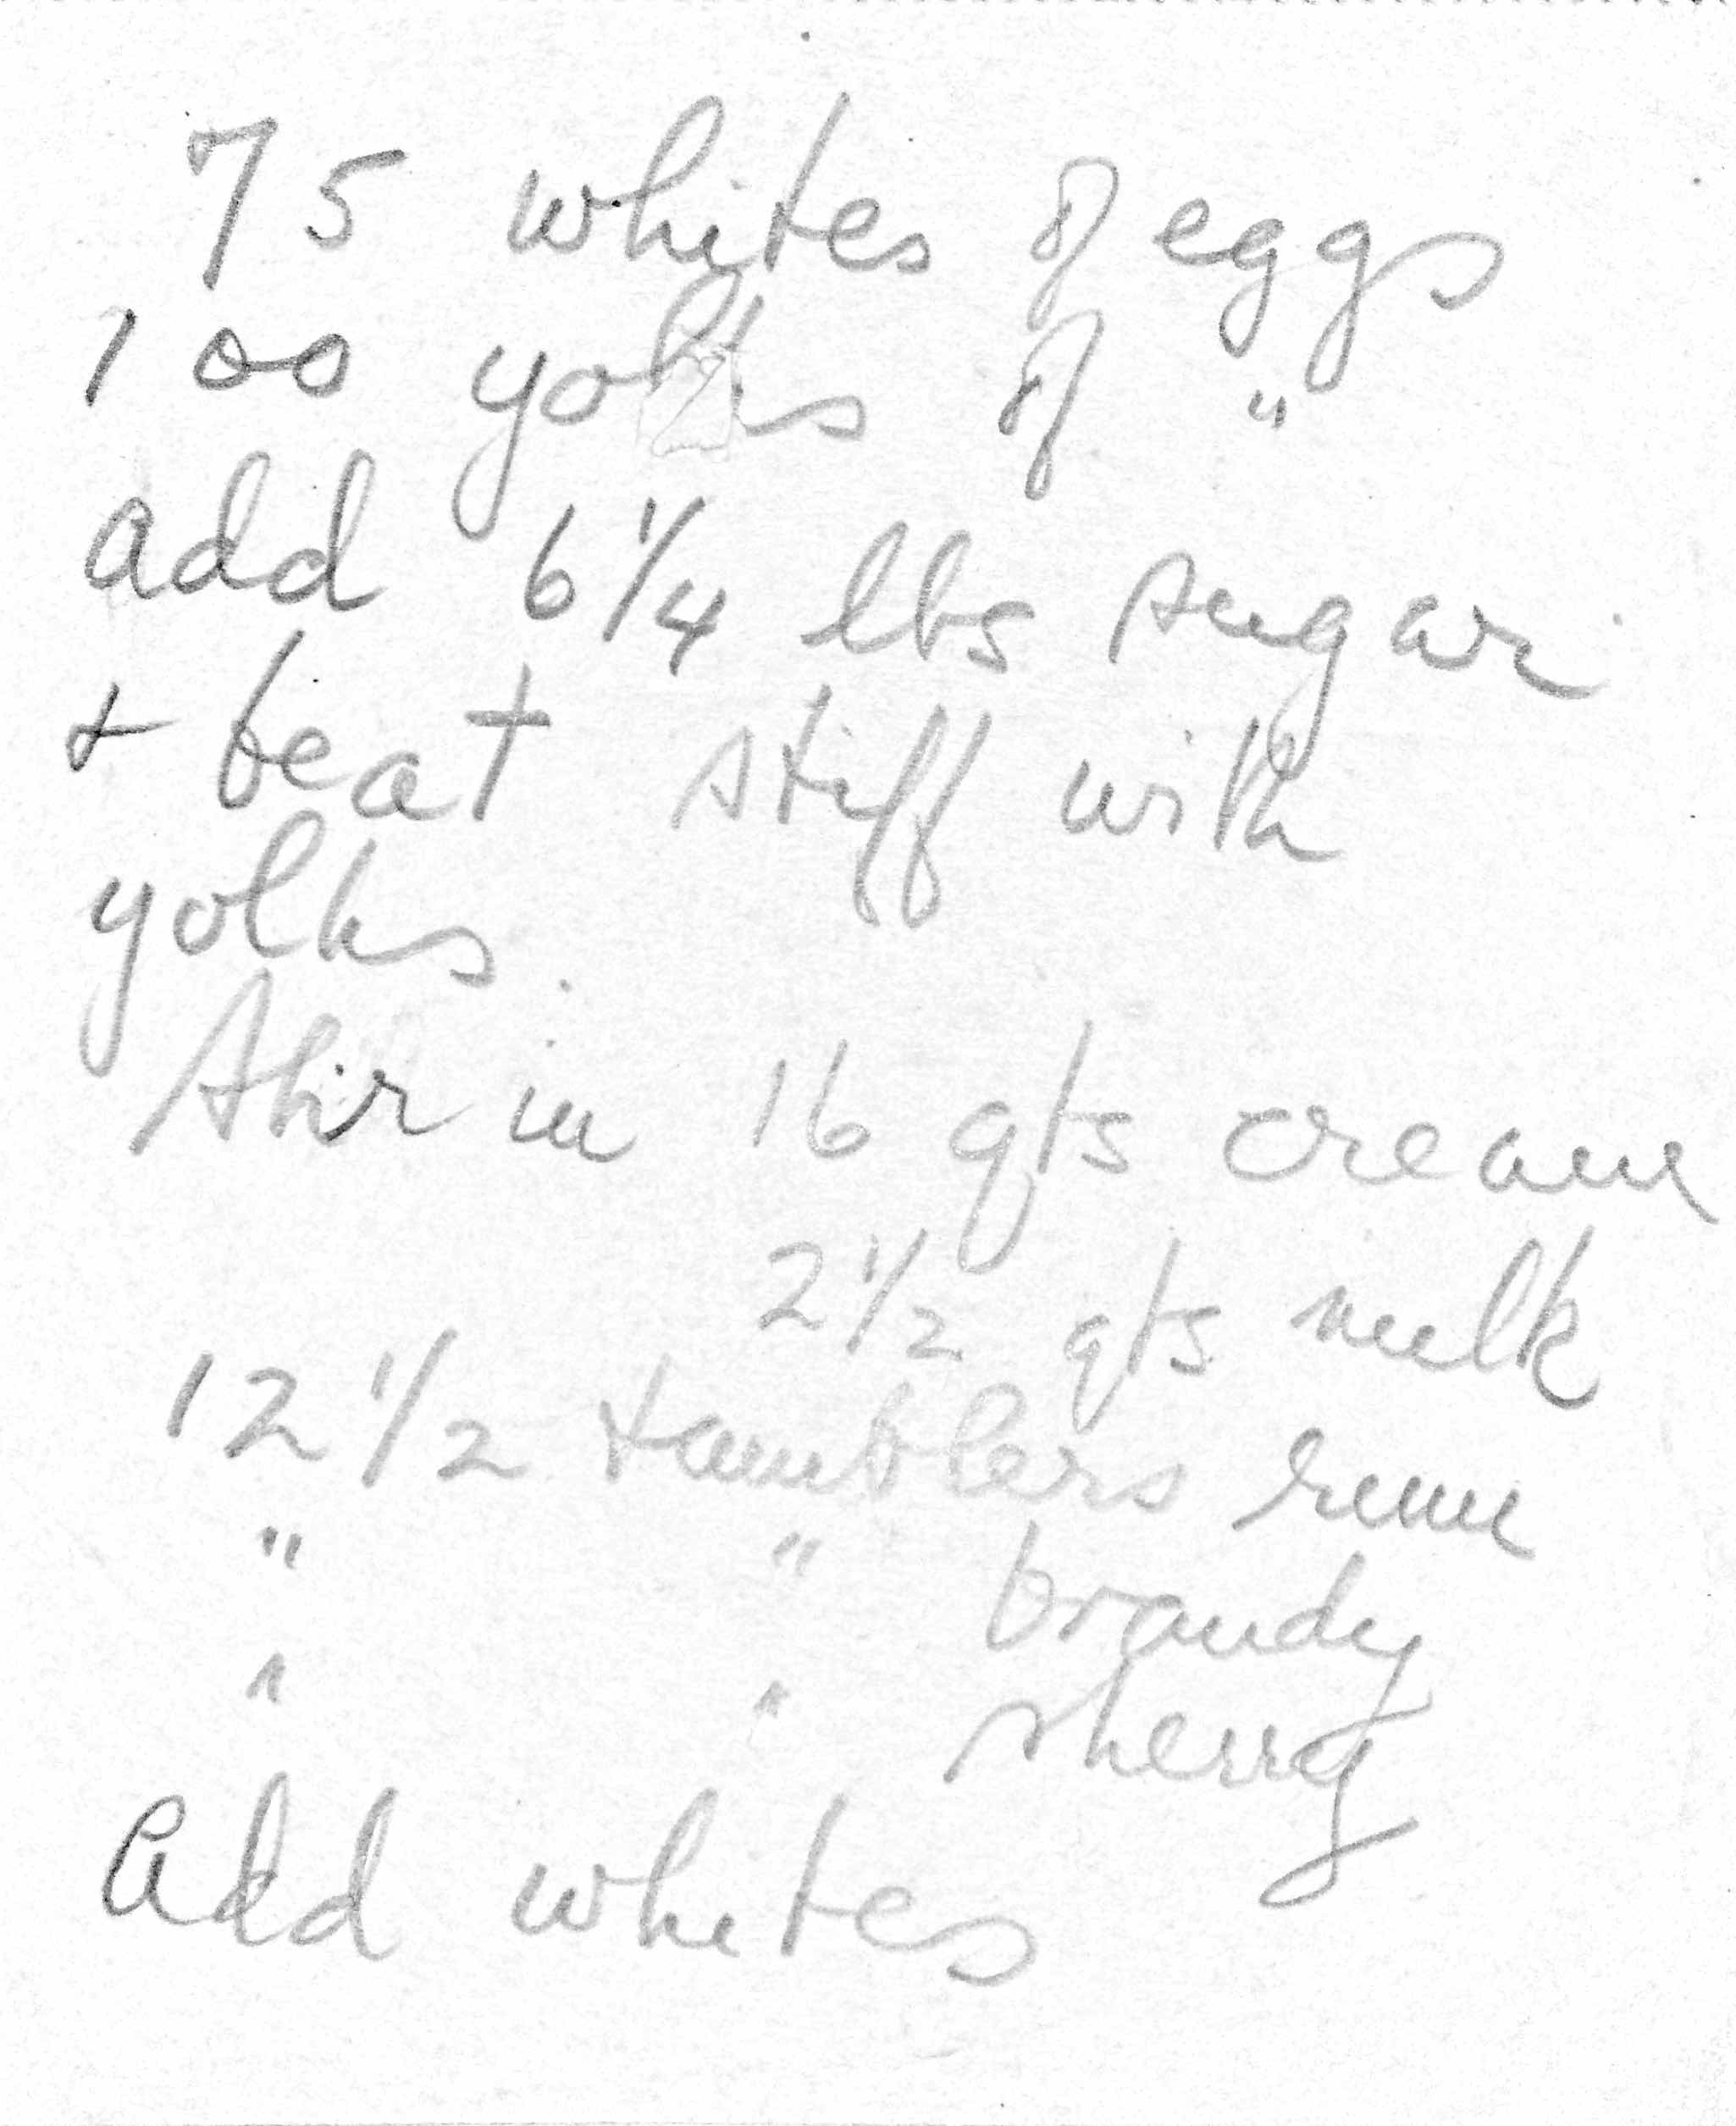 75 whites of eggs
100 yolks of "
add 6 1/4 lbs sugar
+ beat stiff with
yolks.
Stir in 16 qts cream
2 1/2 qts milk
12 1/2 tumblers rum
" " brandy
" " sherry
Add whites